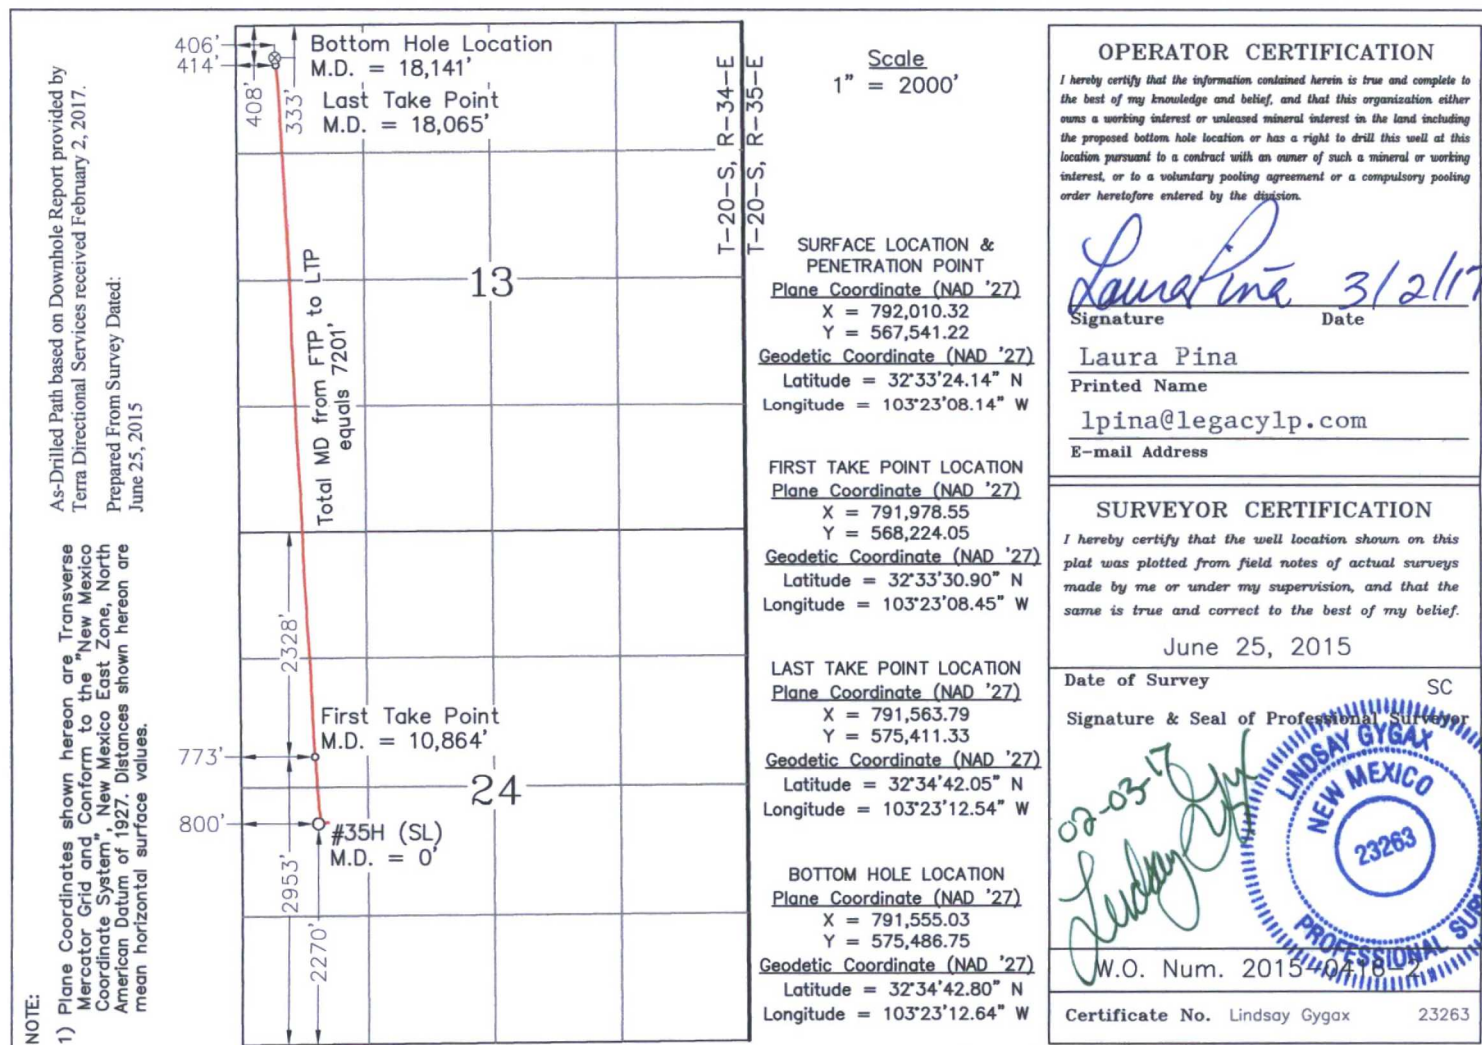 As-Drilled Path based on Downhole Report provided by
Terra Directional Services received February 2, 2017.
Prepared From Survey Dated:
June 25, 2015
NOTE:
1) Plane Coordinates shown hereon are Transverse
Mercator Grid and Conform to the "New Mexico
Coordinate System", New Mexico East Zone, North
American Datum of 1927. Distances shown hereon are
mean horizontal surface values.
406'
414'
408'
333'
Bottom Hole Location
M.D. = 18,141'
Last Take Point
M.D. = 18,065'
T-20-S, R-34-E
T-20-S, R-35-E
13
Total MD from FTP to LTP
equals 7201'
2328'
First Take Point
M.D. = 10,864'
773'
24
800'
#35H (SL)
M.D. = 0'
2953'
2270'
Scale
1" = 2000'
SURFACE LOCATION &
PENETRATION POINT
Plane Coordinate (NAD '27)
X = 792,010.32
Y = 567,541.22
Geodetic Coordinate (NAD '27)
Latitude = 32°33'24.14" N
Longitude = 103°23'08.14" W
FIRST TAKE POINT LOCATION
Plane Coordinate (NAD '27)
X = 791,978.55
Y = 568,224.05
Geodetic Coordinate (NAD '27)
Latitude = 32°33'30.90" N
Longitude = 103°23'08.45" W
LAST TAKE POINT LOCATION
Plane Coordinate (NAD '27)
X = 791,563.79
Y = 575,411.33
Geodetic Coordinate (NAD '27)
Latitude = 32°34'42.05" N
Longitude = 103°23'12.54" W
BOTTOM HOLE LOCATION
Plane Coordinate (NAD '27)
X = 791,555.03
Y = 575,486.75
Geodetic Coordinate (NAD '27)
Latitude = 32°34'42.80" N
Longitude = 103°23'12.64" W
OPERATOR CERTIFICATION
I hereby certify that the information contained herein is true and complete to
the best of my knowledge and belief, and that this organization either
owns a working interest or unleased mineral interest in the land including
the proposed bottom hole location or has a right to drill this well at this
location pursuant to a contract with an owner of such a mineral or working
interest, or to a voluntary pooling agreement or a compulsory pooling
order heretofore entered by the division.
Laura Pina 3/2/17
Signature Date
Laura Pina
Printed Name
lpina@legacylp.com
E-mail Address
SURVEYOR CERTIFICATION
I hereby certify that the well location shown on this
plat was plotted from field notes of actual surveys
made by me or under my supervision, and that the
same is true and correct to the best of my belief.
June 25, 2015
Date of Survey
SC
Signature & Seal of Professional Surveyor
02-03-17
Lindsay Gygax
LINDSAY GYGAX
NEW MEXICO
23263
PROFESSIONAL SUR
W.O. Num. 2015-0418-2
Certificate No. Lindsay Gygax 23263